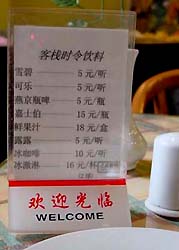 客栈时令饮料
雪碧 5元/听
可乐 5元/听
燕京瓶啤 5元/瓶
嘉士伯 15元/瓶
鲜果汁 18元/盒
露露 5元/听
冰咖啡 10元/听
冰激淋 16元/杯
欢迎光临
WELCOME